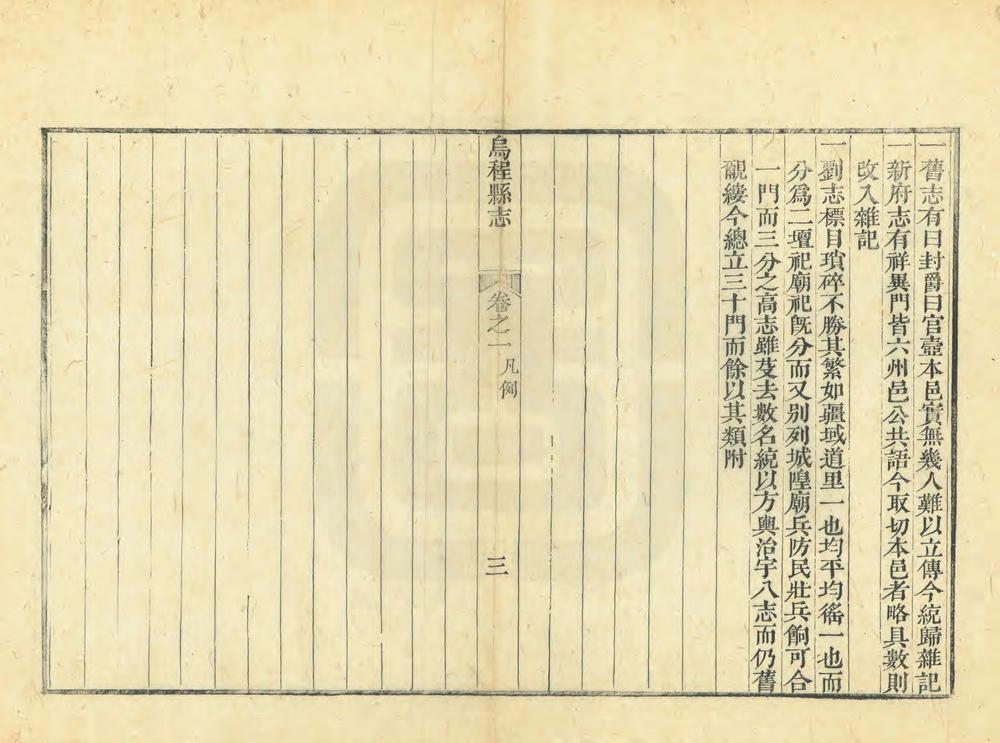 一舊志有曰封爵曰官壼本邑實無幾人難以立傳今統歸雜記
一新府志有祥異門皆六州邑公共語今取切本邑者略具數則
改入雜記
一劉志標目瑣碎不勝其繁如疆域道里一也均平均徭一也而
分爲二壇祀廟祀旣分而又別列城隍廟兵防民壯兵餉可合
一門而三分之高志雖芟去數名統以方輿治宇八志而仍舊
覼縷今總立三十門而餘以其類附
烏程縣志
卷之一
凡例
三